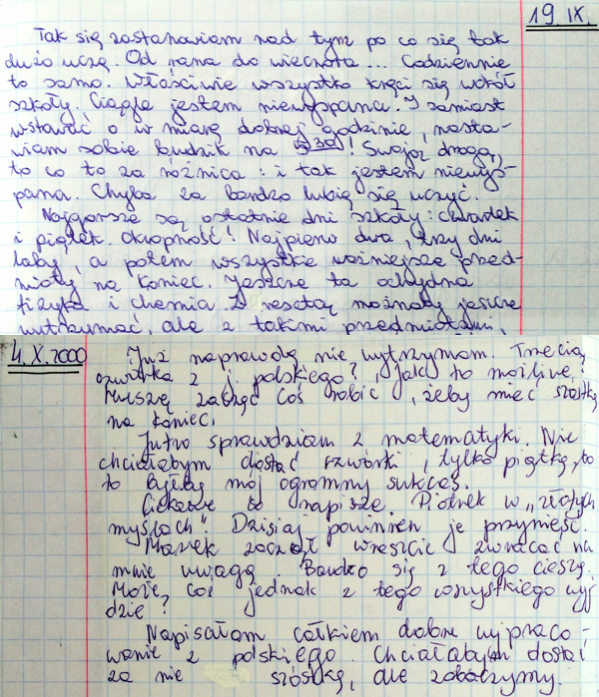 19 IX.
Tak się zastanawiam nad tym po co się tak
dużo uczę. Od rana do wieczora... Codziennie
to samo. Właściwie wszystko kręci się wokół
szkoły. Ciągle jestem niewyspana. I zamiast
wstawać o w miarę dobrej godzinie, nasta-
wiam sobie budzik na 5³⁰! Swoją drogą,
to co to za różnica: i tak jestem niewys-
pana. Chyba za bardzo lubię się uczyć.
Najgorsze są ostatnie dni szkoły: czwartek
i piątek. Okropność! Najpierw dwa, trzy dni
laby, a potem wszystkie ważniejsze przed-
mioty na koniec. Jeszcze ta ochydna
fizyka i chemia. Z resztą możnaby jeszcze
wytrzymać, ale z takimi przedmiotami,
4. X. 2000
Już naprawdę nie wytrzymam. Trzecia
czwórka z j. polskiego?, Jak to możliwe?
Muszę zacząć coś robić, żeby mieć szóstkę
na koniec.
Jutro sprawdzian z matematyki. Nie
chciałabym dostać czwórki, tylko piątkę, to
to byłby mój ogromny sukces.
Ciekawe co napisze Piotrek w „złotych
myślach". Dzisiaj powinien je przynieść.
Marek zaczął wreszcie zwracać na
mnie uwagę. Bardzo się z tego cieszę.
Może coś jednak z tego wszystkiego wyj
dzie?
Napisałam całkiem dobre wypraco-
wanie z polskiego. Chciałabym dostać
za nie szóstkę, ale zobaczymy.